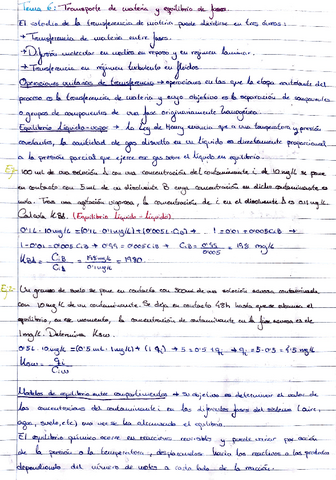 Tema 6: Transporte de materia y equilibrio de fases.
El estudio de la transferencia de materia puede dividirse en tres áreas:
→ Transferencia de materia entre fases.
→ Difusión molecular en medios en reposo y en régimen laminar.
→ Transferencia en régimen turbulento en fluidos.
Operaciones unitarias de transferencia → operaciones en las que la etapa controlante del
proceso es la transferencia de materia y cuyo objetivo es la separación de componentes
o grupos de componentes de una fase originariamente homogénea.
Equilibrio líquido-vapor → la Ley de Henry enuncia que a una temperatura y presión
constantes, la cantidad de gas disuelta en un líquido es directamente proporcional
a la presión parcial que ejerce ese gas sobre el líquido en equilibrio.
100 ml de una solución A con una concentración del contaminante i de 10 mg/L se pone
en contacto con 5 ml de un disolvente B cuya concentración en dicho contaminante es
nula. Tras una agitación vigorosa, la concentración de i en el disolvente A es 0.1 mg/L.
Calcula KBA. (Equilibrio Líquido-Líquido)
0.1L · 10mg/L = (0.1L · 0.1mg/L) + (0.005L · CiB) → 1 = 0.01 + 0.005CiB →
1 - 0.01 = 0.005CiB → 0.99 = 0.005CiB → CiB = 0.99/0.005 = 198 mg/L
KBA = CiB/CiA = 198mg/L / 0.1mg/L = 1980.
Un gramo de suelo se pone en contacto con 500ml de una solución acuosa contaminada
con 10mg/L de un contaminante. Se deja en contacto 48h hasta que se alcanza el
equilibrio, en ese momento, la concentración de contaminante en la fase acuosa es de
1mg/L. Determina Ksw.
Ksw = qi/Ciw
Modelos de equilibrio entre compartimentos → Su objetivo es determinar el valor de
las concentraciones del contaminante i en las diferentes fases del sistema (aire,
agua, suelo, etc) una vez se ha alcanzado el equilibrio.
El equilibrio químico ocurre en reacciones reversibles y puede variar por acción
de la presión o la temperatura, desplazando hacia los reactivos o los productos
dependiendo del número de moles a cada lado de la reacción.